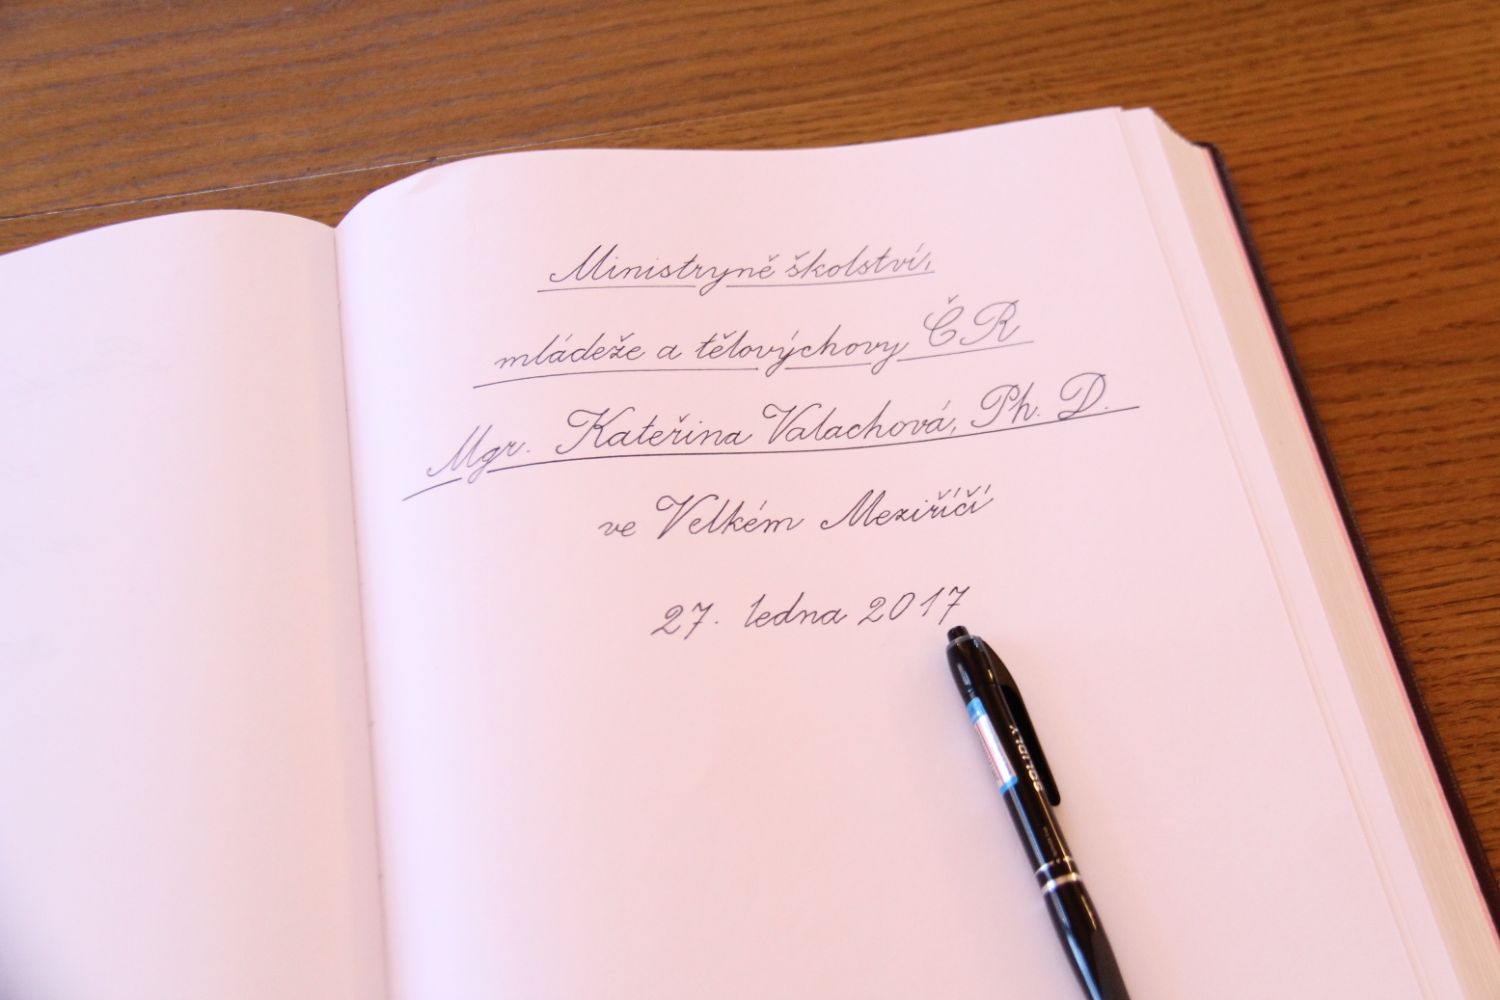 Ministryně školství,
mládeže a tělovýchovy ČR
Mgr. Kateřina Valachová, Ph. D.
ve Velkém Meziříčí
27. ledna 2017
SOLIDLY